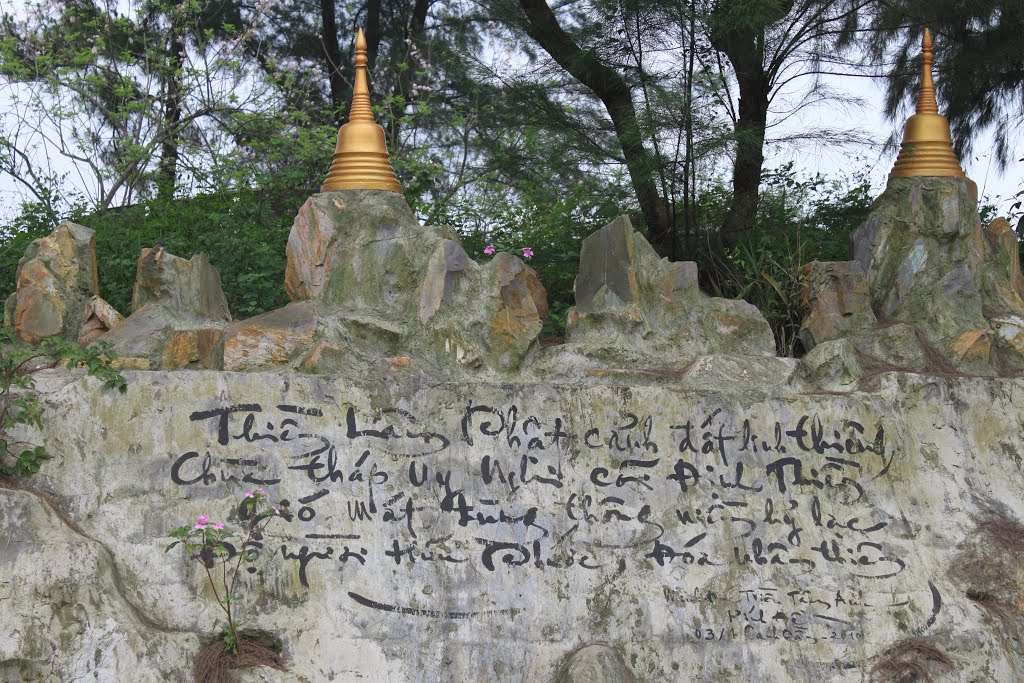 Thiền Lâm Phật cảnh đất linh thiêng,
Chùa tháp Uy Nghi cõi Định Thiền
gió mát từng thông niềm hỷ lạc
Để người tiến Phước, đóa nhân thiên
03/1